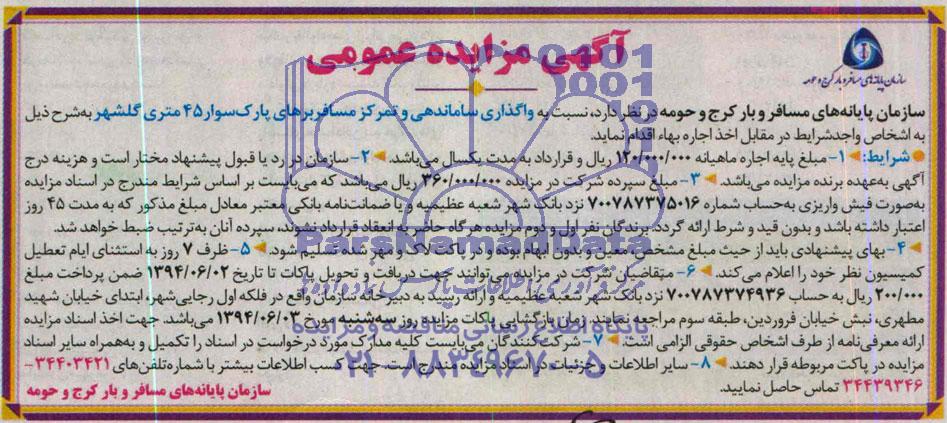 آگهی مزایده عمومی
سازمان پایانه‌های مسافر و بار کرج و حومه
سازمان پایانه‌های مسافر و بار کرج و حومه در نظر دارد، نسبت به واگذاری ساماندهی و تمرکز مسافربرهای پارک‌سوار ۴۵ متری گلشهر به‌شرح ذیل
به اشخاص واجدشرایط در مقابل اخذ اجاره بهاء اقدام نماید.
شرایط: ۱- مبلغ پایه اجاره ماهیانه ۱۲۰/۰۰۰/۰۰۰ ریال و قرارداد به مدت یکسال می‌باشد. ۲- سازمان در رد یا قبول پیشنهاد مختار است و هزینه درج
آگهی به‌عهده برنده مزایده می‌باشد. ۳- مبلغ سپرده شرکت در مزایده ۳۶۰/۰۰۰/۰۰۰ ریال می‌باشد که می‌بایست بر اساس شرایط مندرج در اسناد مزایده
به‌صورت فیش واریزی به‌حساب شماره ۷۰۰۷۸۷۳۷۵۰۱۶ نزد بانک شهر شعبه عظیمیه و یا ضمانت‌نامه بانکی معتبر معادل مبلغ مذکور که به مدت ۴۵ روز
اعتبار داشته باشد و بدون قید و شرط ارائه گردد. برندگان نفر اول و دوم مزایده هرگاه حاضر به انعقاد قرارداد نشوند، سپرده آنان به‌ترتیب ضبط خواهد شد.
۴- بهای پیشنهادی باید از حیث مبلغ مشخص، معین و بدون ابهام بوده و در پاکت لاک و مهر شده تسلیم شود. ۵- ظرف ۷ روز به استثنای ایام تعطیل
کمیسیون نظر خود را اعلام می‌کند. ۶- متقاضیان شرکت در مزایده می‌توانند جهت دریافت و تحویل پاکات تا تاریخ ۱۳۹۴/۰۶/۰۲ ضمن پرداخت مبلغ
۲۰۰/۰۰۰ ریال به حساب ۷۰۰۷۸۷۳۷۴۹۳۶ نزد بانک شهر شعبه عظیمیه و ارائه رسید به دبیرخانه سازمان واقع در فلکه اول رجایی‌شهر، ابتدای خیابان شهید
مطهری، نبش خیابان فروردین، طبقه سوم مراجعه نمایند. زمان بازگشایی پاکات مزایده روز سه‌شنبه مورخ ۱۳۹۴/۰۶/۰۳ می‌باشد. جهت اخذ اسناد مزایده
ارائه معرفی‌نامه از طرف اشخاص حقوقی الزامی است. ۷- شرکت‌کنندگان می‌بایست کلیه مدارک مورد درخواست در اسناد را تکمیل و به‌همراه سایر اسناد
مزایده در پاکت مربوطه قرار دهند. ۸- سایر اطلاعات و جزئیات در اسناد مزایده مندرج است. جهت کسب اطلاعات بیشتر با شماره تلفن‌های ۳۴۴۰۳۴۲۱-
۳۴۴۳۹۳۴۶ تماس حاصل نمایید.
سازمان پایانه‌های مسافر و بار کرج و حومه
ParsNamadData
پایگاه اطلاع رسانی مناقصه و مزایده
۰۲۱-۸۸۳۴۹۶۷۰-۵